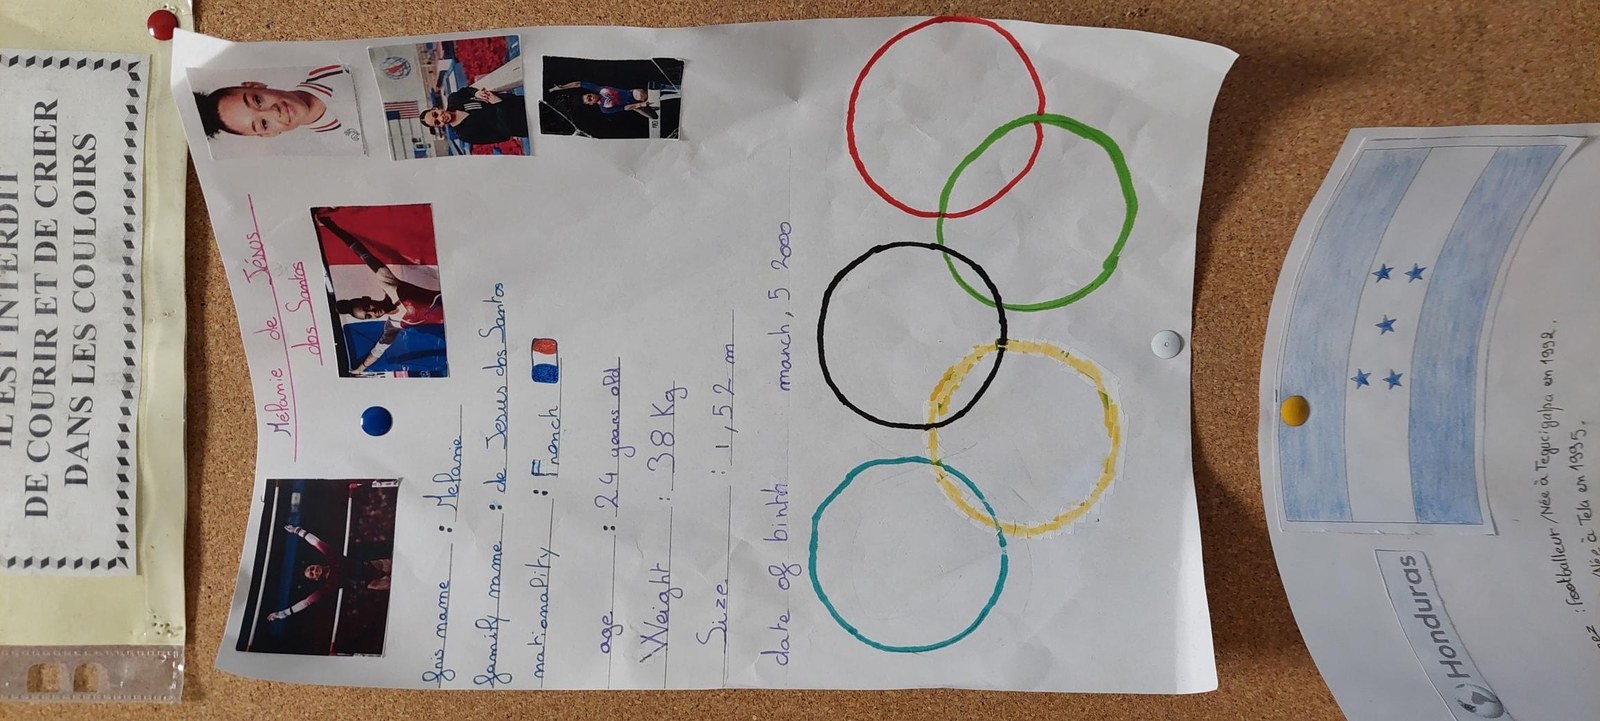 IL EST INTERDIT
DE COURIR ET DE CRIER
DANS LES COULOIRS
Mélanie de Jésus
dos Santos
firs name : Mélanie
family name : de Jesus dos Santos
nationality : French
age : 24 years old
Weight : 38 Kg
Size : 1,52 m
date of birhh march, 5 2000
Honduras
: footballeur/Née à Tegucigalpa en 1992.
/Née à Tela en 1995.